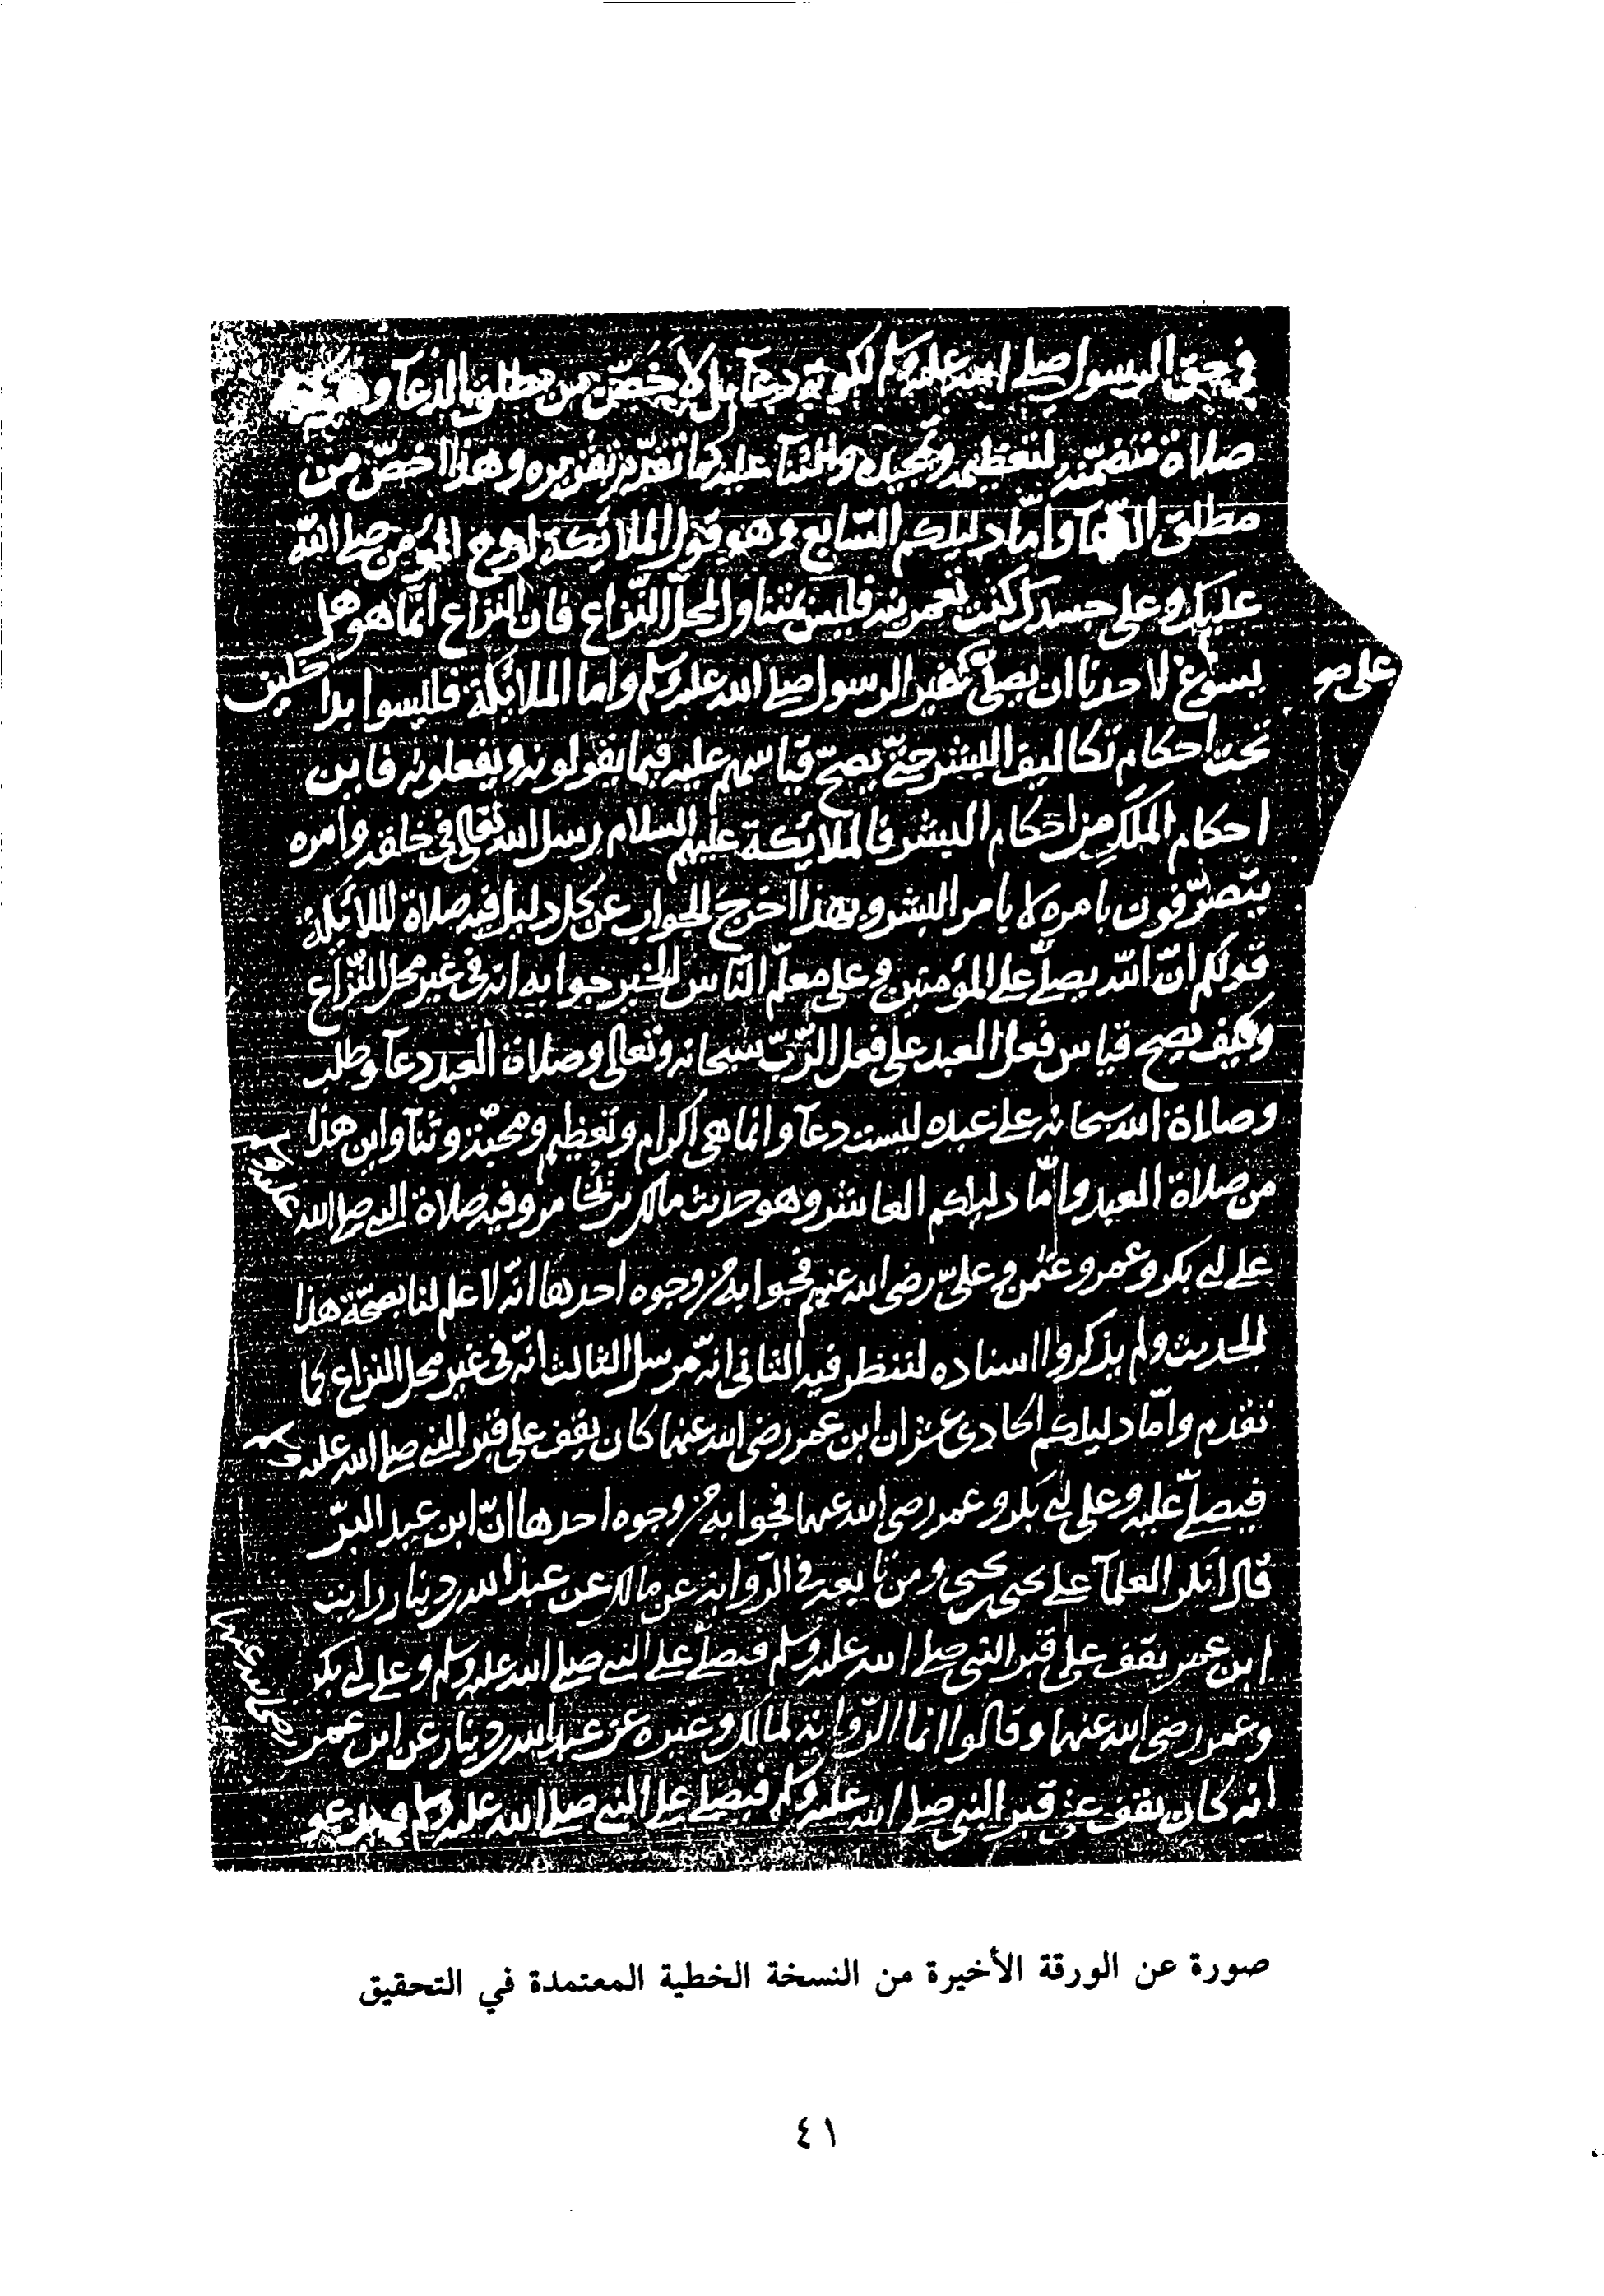 في حق الرسول صلى الله عليه وسلم لكونه دعآ بل لاخص من مطلق الدعآ وهو كونه
صلاة متضمنة لتعظيمه وتمجيده والثنآ عليه كما تقدم تقريره وهذا اخص من
مطلق الدعآ وامّا دليلكم السّابع وهو قول الملائكة لروح المؤمن صلى الله
عليك وعلى جسد كنت تعمرينه فليس بمتناول لمحل النّزاع فان النزاع انّما هو هل
يسوغ لاحدنا ان يصلّي على غير الرسول صلى الله عليه وسلم واما الملائكة فليسوا بداخلين
تحت احكام تكاليف البشر حتى يصحّ قياسهم عليه فيما يقولونه ويفعلونه فاين
احكام الملك من احكام البشر فالملائكة عليهم السلام رسل الله تعالى في خلقه وامره
يتصرّفون بامره لا بامر البشر وبهذا خرج الجواب عن كل دليل فيه صلاة الملائكة
قولكم انّ الله يصلّي على المؤمنين وعلى معلّم النّاس الخير جوابه انه في غير محل النّزاع
وكيف يصح قياس فعل العبد على فعل الرّبّ سبحانه وتعالى وصلاة العبد دعآ وطلب
وصلاة الله سبحانه على عبده ليست دعآ وانما هي اكرام وتعظيم ومحبّة وثنآ واين هذا
من صلاة العبد وامّا دليلكم العاشر وهو حديث مالك بن يخامر وفيه صلاة النبي صلى الله عليه وسلم
على ابي بكر وعمر وعثمن وعليّ رضي الله عنهم فجوابه من وجوه احدها انّه لا علم لنا بصحّة هذا
الحديث ولم يذكروا اسناده لننظر فيه الثاني انّه مرسل الثالث انّه في غير محل النزاع كما
تقدم وامّا دليلكم الحادي عشر ان ابن عمر رضي الله عنهما كان يقف على قبر النبي صلى الله عليه وسلم
فيصلّي عليه وعلى ابي بكر وعمر رضي الله عنهما فجوابه من وجوه احدها انّ ابن عبد البرّ
قال انكر العلمآ على يحيى بن يحيى ومن تابعه في الرّواية عن مالك عن عبد الله بن دينار رايت
ابن عمر يقف على قبر النبي صلى الله عليه وسلم فيصلّي على النبي صلى الله عليه وسلم وعلى ابي بكر
وعمر رضي الله عنهما وقالوا انما الرّواية لمالك وغيره عن عبد الله بن دينار عن ابن عمر رضي الله عنهما
انه كان يقف على قبر النبي صلى الله عليه وسلم فيصلي على النبي صلى الله عليه وسلم ويدعو
صورة عن الورقة الأخيرة من النسخة الخطية المعتمدة في التحقيق
٤١